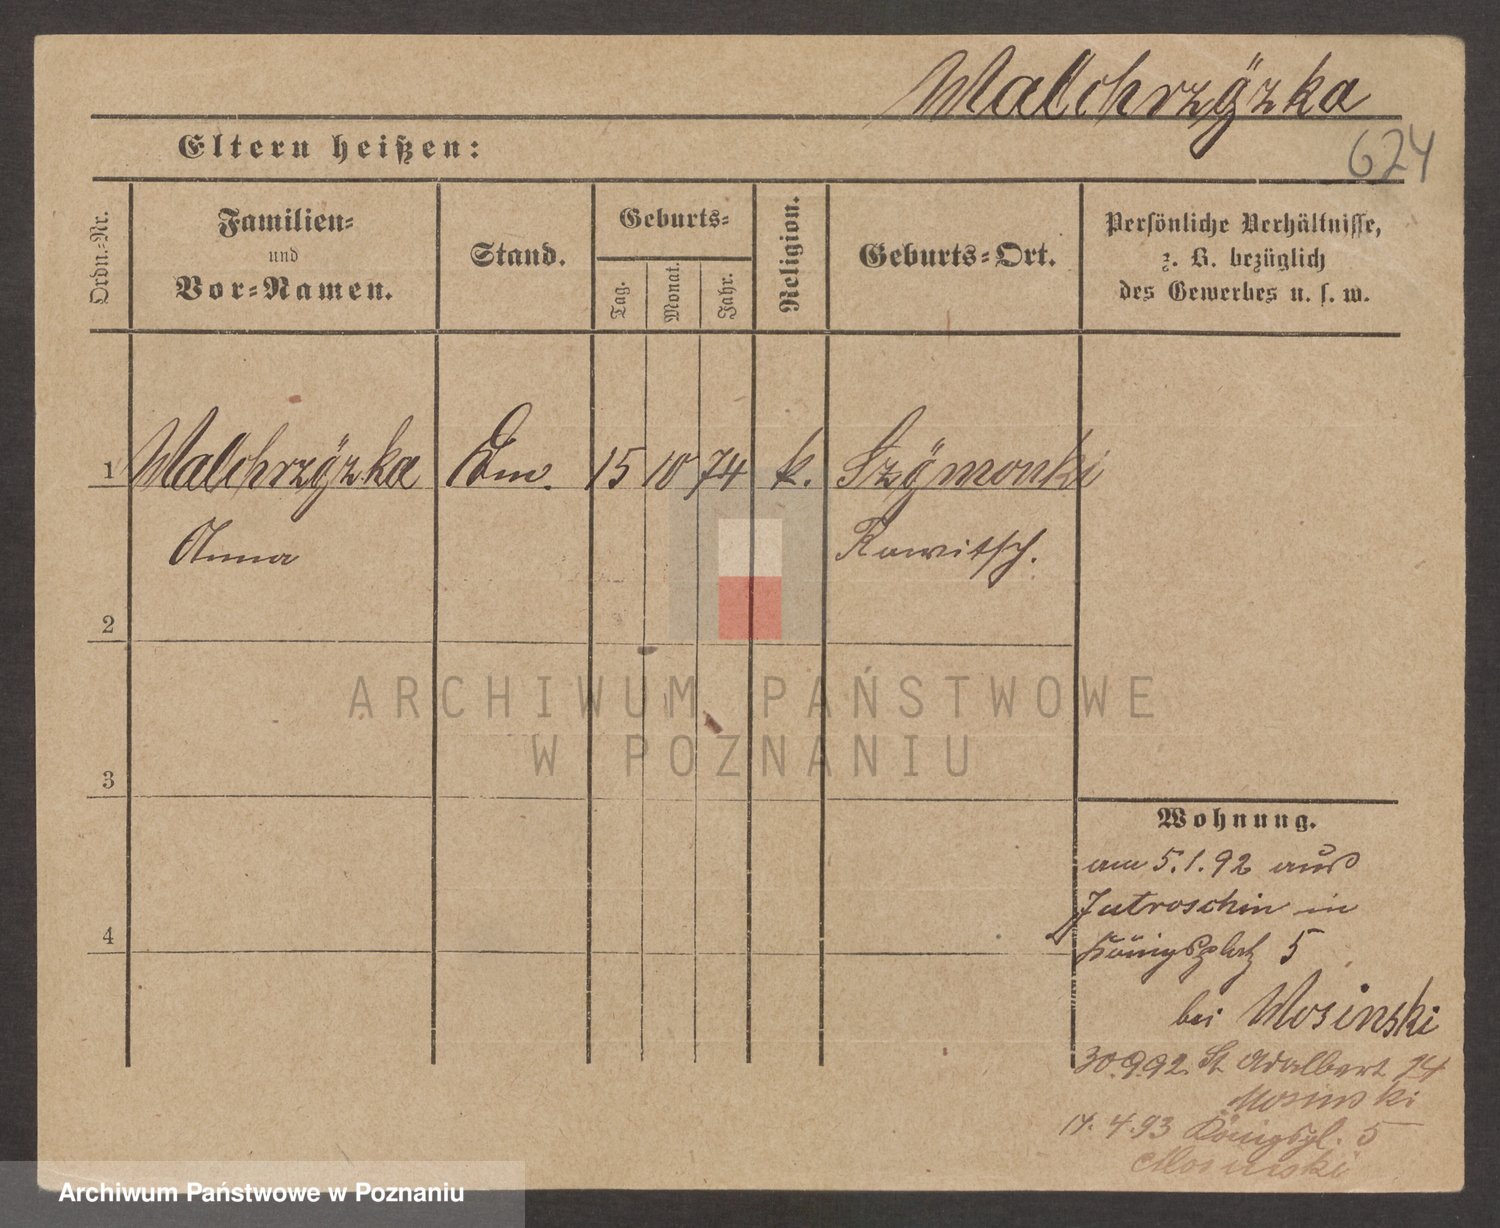 Walchrzÿzka
624
Eltern heißen:
Ordn.-Nr.
Familien-
und
Vor-Namen.
Stand.
Geburts-
Tag.
Monat.
Jahr.
Religion.
Geburts-Ort.
Persönliche Verhältnisse,
z. B. bezüglich
des Gewerbes u. s. w.
1 Walchrzÿzka 15 10 74 k. Szÿmonki
Anna Rawitsch.
2
3
4
Wohnung.
am 5.1.92 aus
Jutroschin in
Königsplatz 5
bei Mosinski
30.9.92. St Adalbert 24
Mosinski
17.4.93 Königspl. 5
Mosinski
ARCHIWUM PAŃSTWOWE
W POZNANIU
Archiwum Państwowe w Poznaniu